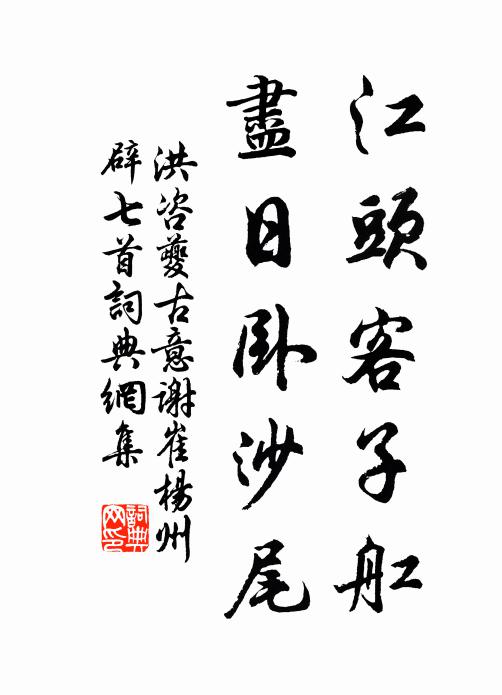 江頭客子舡
盡日卧沙尾
洪咨夔古意謝崔楊州
辟七首詞典網集
詞典网印